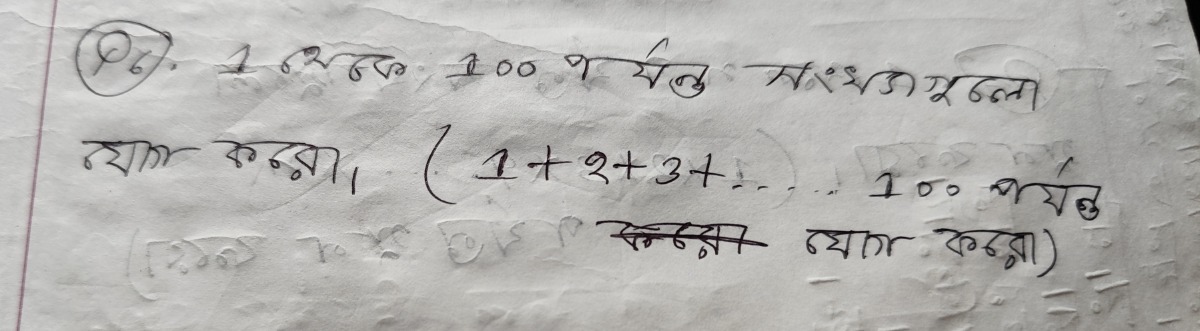 1 থেকে 100 পর্যন্ত সংখ্যাগুলো
যোগ করো। (1+2+3+..... 100 পর্যন্ত
যোগ করো)